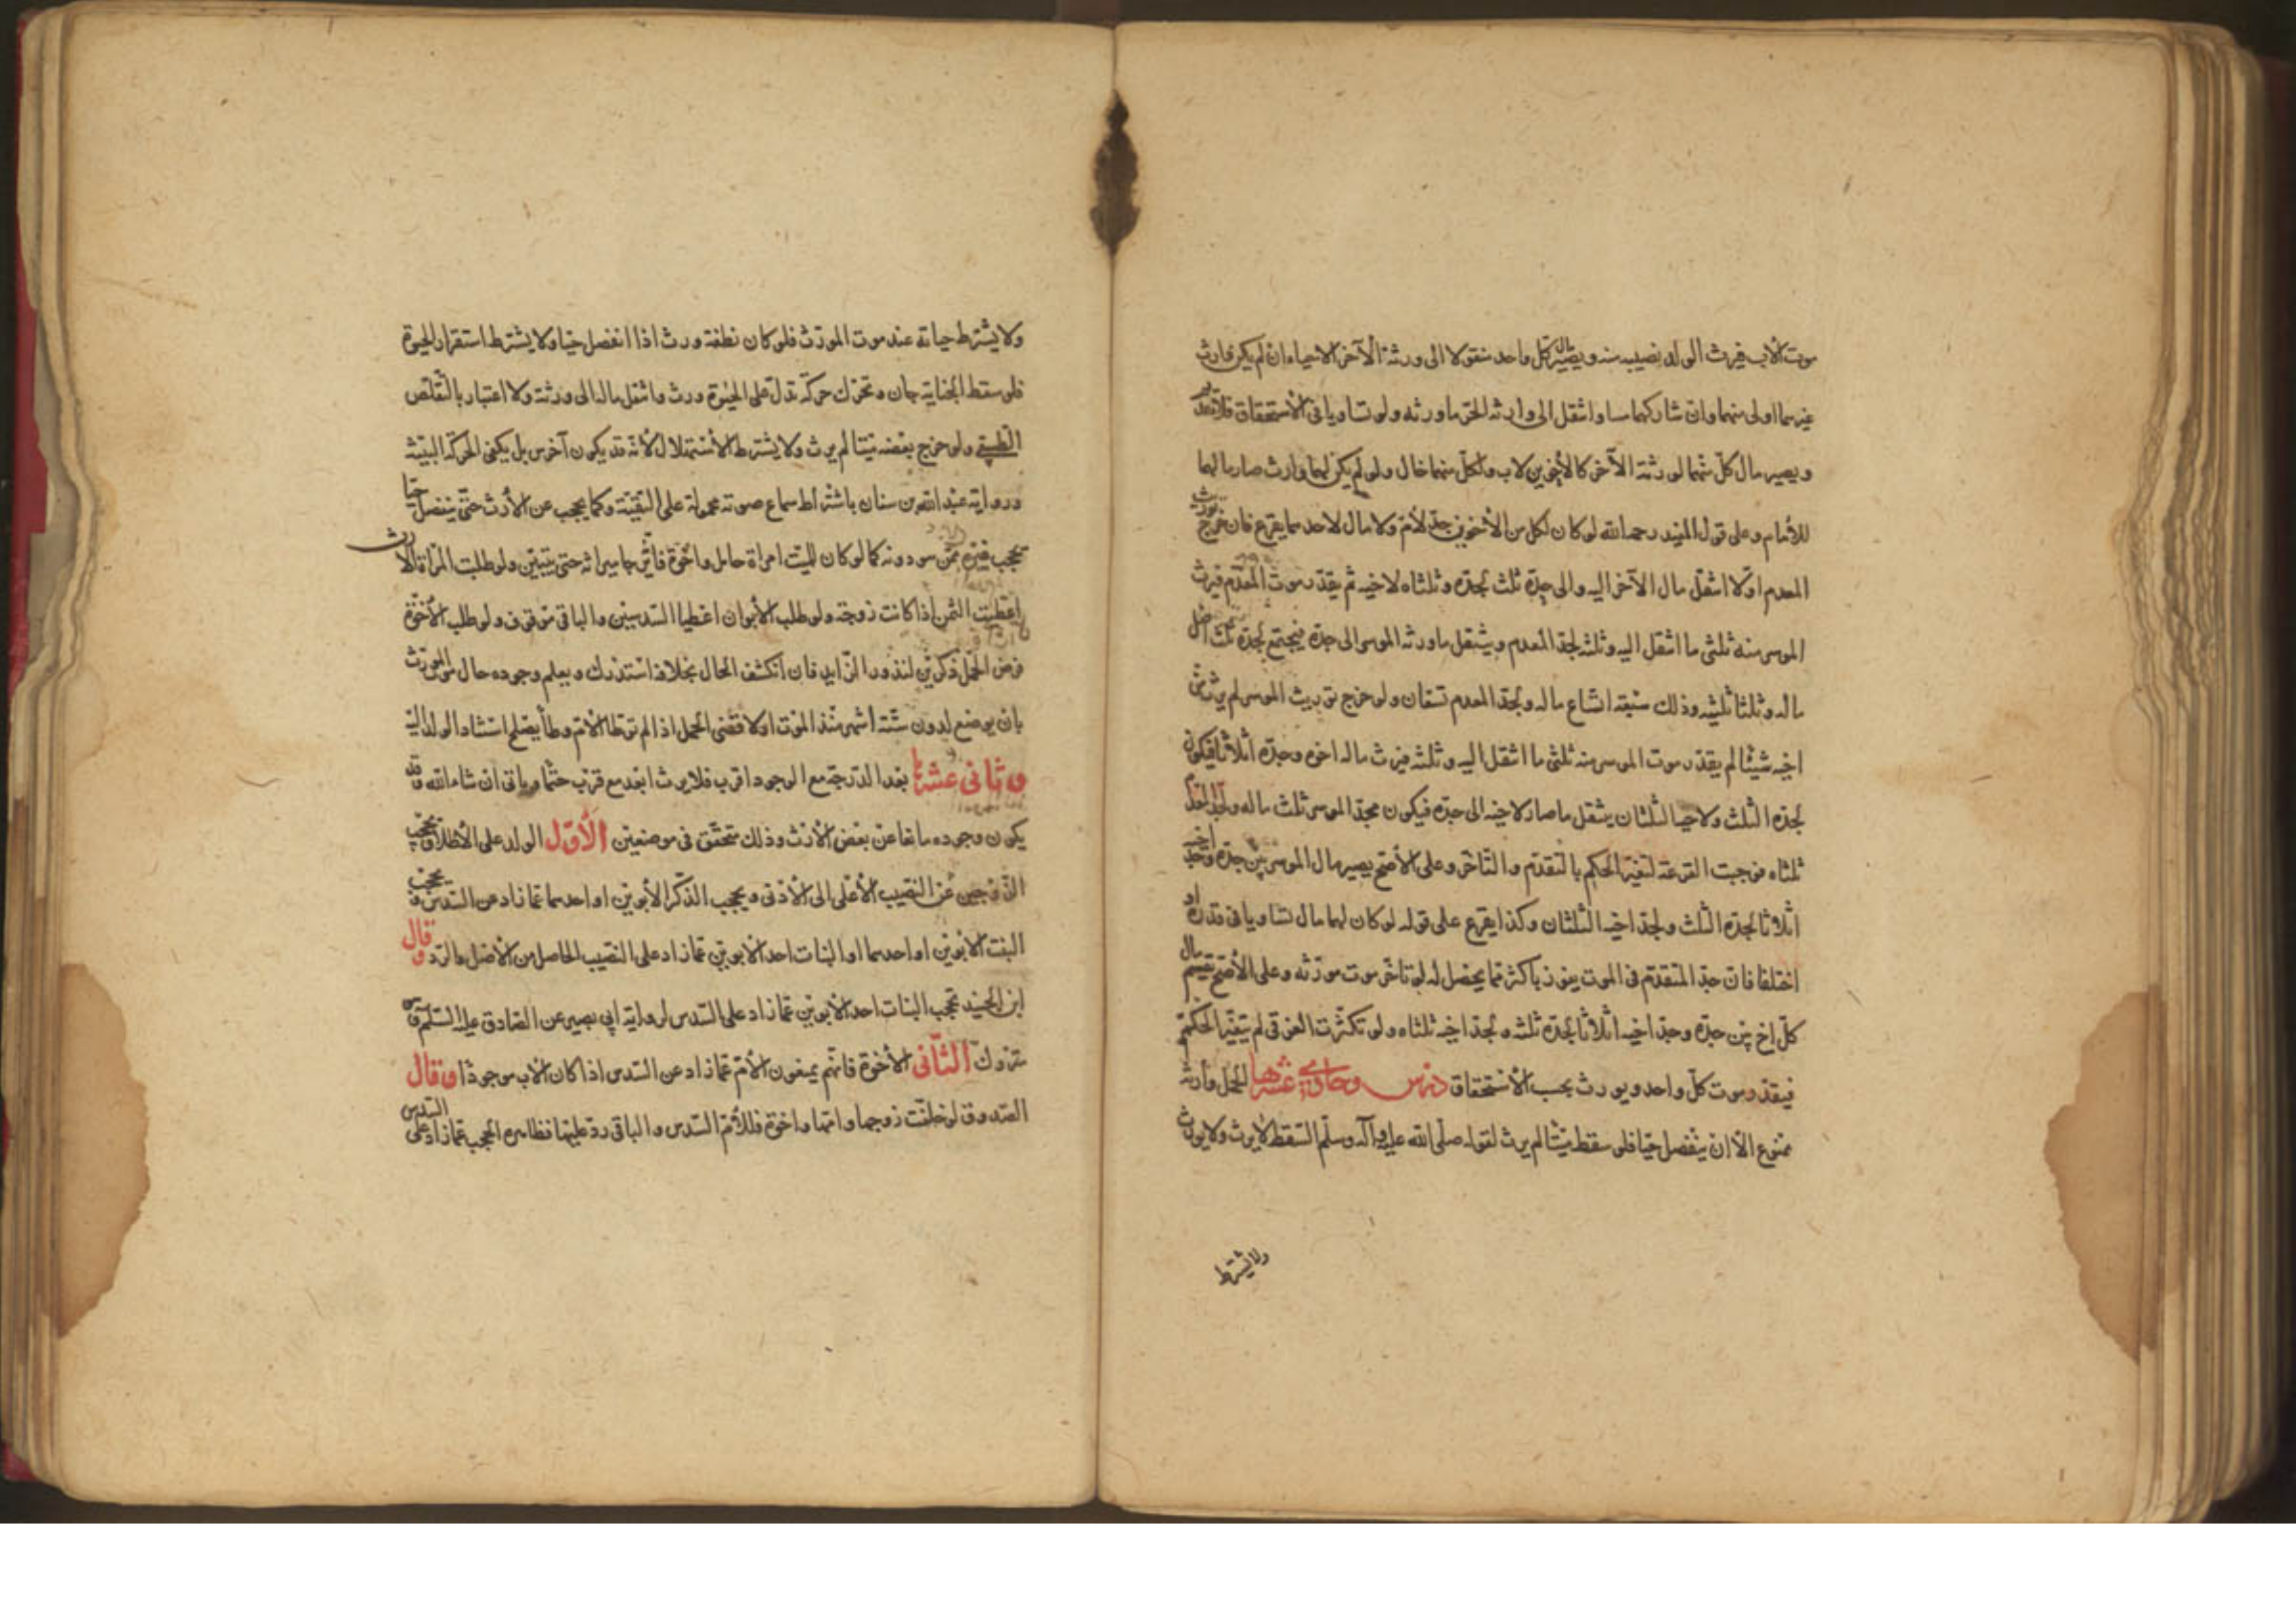 موت الأب فيرث الولد نصيبه منه ويصير مال كل واحد منقولا الى ورثة الآخر الاحياء ان لم يكن وارث
غيرهما اولى منهما وان شاركهما ساوا انتقل الى وارثه الحق ما ورثه ولو تساويا فى الأستحقاق فلا تقديم
ويصير مال كلّ منهما لورثة الآخر كالأخوين لاب ولكلّ منهما خال ولو لم يكن لهما وارث صار مالهما
للأمام وعلى قول المفيد رحمه الله لو كان لكل من الأخوين جدّ لأمّ ولا مال لاحدهما يقرع فان خرج توريث
المعدم اوّلا انتقل مال الآخر اليه والى جدّه ثلث لجدّه وثلثاه لاخيه ثم يقدّر موت المعدم فيرث
الموسر منه ثلثى ما انتقل اليه وثلثه لجدّ المعدم وينتقل ما ورثه الموسر الى جدّه فيجتمع لجدّه ثلث اصل
ماله وثلثا ثلثيه وذلك سبعة اتساع ماله ولجدّ المعدم تسعان ولو خرج توريث الموسر لم يرث من
اخيه شيئا لم يقدّر موت الموسر منه ثلثى ما انتقل اليه وثلثه فيرث ماله اخوه وجدّه اثلاثا فيكون
لجدّه الثلث ولاخيه الثلثان ينتقل ما صار لاخيه الى جدّه فيكون لجدّ الموسر ثلث ماله ولجدّ المعدم
ثلثاه فوجبت القرعة لتغيّر الحكم بالتقدّم والتأخّر وعلى الأصح يصير مال الموسر بين جدّه وجدّ اخيه
اثلاثا لجدّه الثلث ولجدّ اخيه الثلثان وكذا يقرع على قوله لو كان لهما مال تساويا فى قدره او
اختلفا فان جدّ المتقدّم فى الموت يفوز باكثر مما يحصل له لو تأخّر موت مورّثه وعلى الأصح يقسم مال
كلّ اخ بين جدّه وجدّ اخيه اثلاثا لجدّه ثلثه ولجدّ اخيه ثلثاه ولو تكثّرت الغرقى لم يتغيّر الحكم
فيقدّر موت كلّ واحد ويورث بحسب الأستحقاق درس وحادى عشرها الحمل وارثه
ممنوع الّا ان ينفصل حيّا فلو سقط ميّتا لم يرث لقوله صلّى الله عليه وآله وسلّم السّقط لا يرث ولا يورث
ولا يشترط
ولا يشترط حياته عند موت المورّث فلو كان نطفة ورث اذا انفصل حيّا ولا يشترط استقرار الحيوة
فلو سقط بجناية جان وتحرّك حركة تدلّ على الحيوة ورث وانتقل ماله الى ورثته ولا اعتبار بالتقلّص
الطبيعى ولو خرج بعضه ميّتا لم يرث ولا يشترط الأستهلال لأنّه قد يكون آخرس بل يكفى الحركة البيّنة
ورواية عبد الله بن سنان باشتراط سماع صوته محمولة على التقيّة وكما يحجب عن الأرث حتّى ينفصل حيّا
يحجب غيره ممّن هو دونه كما لو كان للميّت امرأة حامل واخوة فانّ جاء ميراثه حتى يتبيّن ولو طلبت المرأة الأرث
اعطيت الثمن اذا كانت زوجة ولو طلب الأبوان اعطيا السّدسين والباقى موقوف ولو طلب الأخوة
فرض الحمل ذكرين لندور الزّايد فان انكشف الحال بخلافه استدرك ويعلم وجوده حال موت المورّث
بان يوضع لدون ستّة اشهر منذ الموت او لاقصى الحمل اذا لم توطأ الأمّ وطأ يصلح استناد الولد اليه
وثانى عشرها بعد الدّرجة مع الوجود اقرب فلا يرث ابعد مع قرب حتّما ويأتى ان شاء الله وقد
يكون وجوده مانعا عن بعض الأرث وذلك متحقّق فى موضعين الأوّل الولد على الأطلاق يحجب
الزّوجين عن النّصيب الأعلى الى الأدنى ويحجب الذّكر الأبوين او احدهما عمّا زاد عن السّدس وتحجب
البنت الأبوين او احدهما او البنات احد الأبوين عمّا زاد على النصيب الحاصل من الأصل والرّد وقال
ابن الجنيد تحجب البنات احد الأبوين عمّا زاد على السّدس لرواية ابى بصير عن الصّادق عليه السّلم وهى
متروكة الثّانى الأخوة فانّهم يمنعون الأمّ عمّا زاد عن السّدس اذا كان الأب موجودا وقال
الصّدوق لو خلّفت زوجها وامّها واخوة فللأمّ السّدس والباقى ردّ عليها فظاهره الحجب عمّا زاد على السّدس